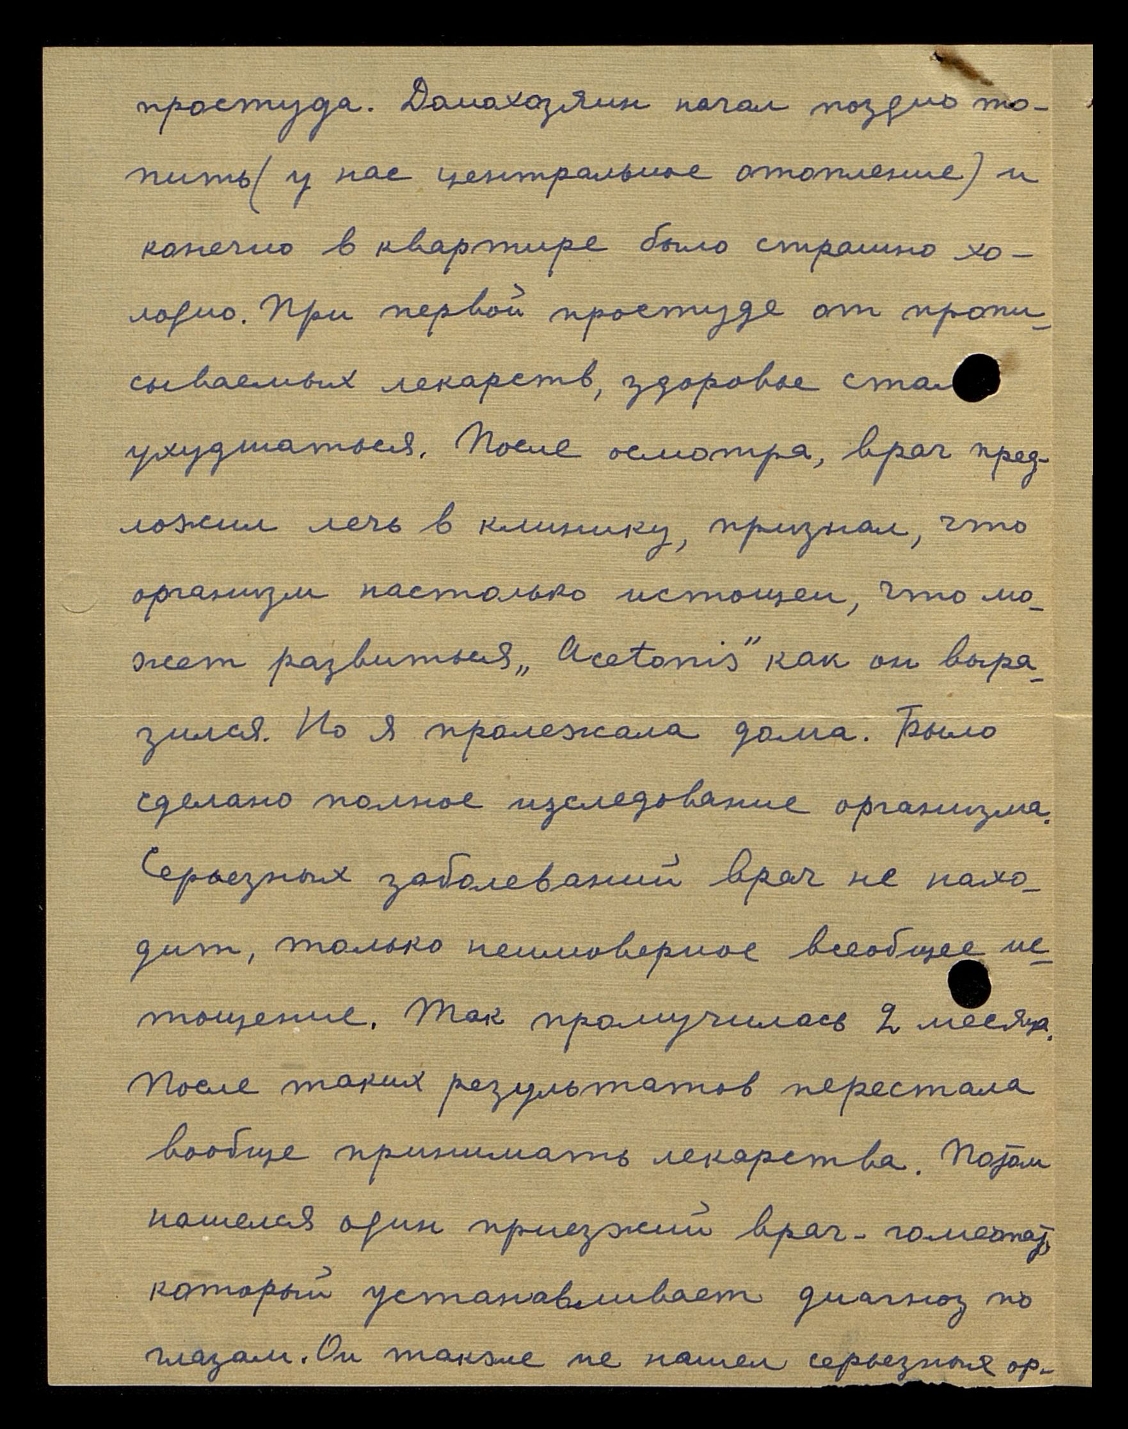 простуда. Домохозяин начал поздно то-
пить (у нас центральное отопление) и
конечно в квартире было страшно хо-
лодно. При первой простуде от пропи-
сываемых лекарств, здоровье стало
ухудшаться. После осмотра, врач пред-
ложил лечь в клинику, признал, что
организм настолько истощен, что мо-
жет развиться „Acetonis" как он выра-
зился. Но я пролежала дома. Было
сделано полное изследование организма.
Серьезных заболеваний врач не нахо-
дит, только неимоверное всеобщее ис-
тощение. Так промучилась 2 месяца.
После таких результатов перестала
вообще принимать лекарства. Потом
нашелся один приезжий врач-гомеопат,
который устанавливает диагноз по
глазам. Он также не нашел серьезных ор-